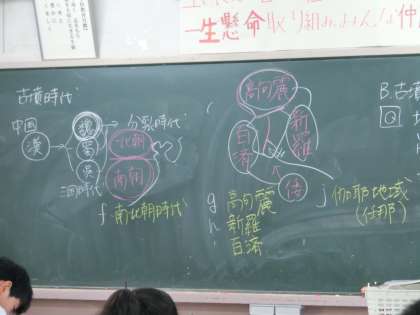 一生懸命取り組
古墳時代
中国
漢
魏
蜀
呉
三国時代
分裂時代
北朝
南朝
f 南北朝時代
高句麗
百済
新羅
g 高句麗
h 新羅
i 百済
j 伽耶地域
(任那)
B.古墳
Q